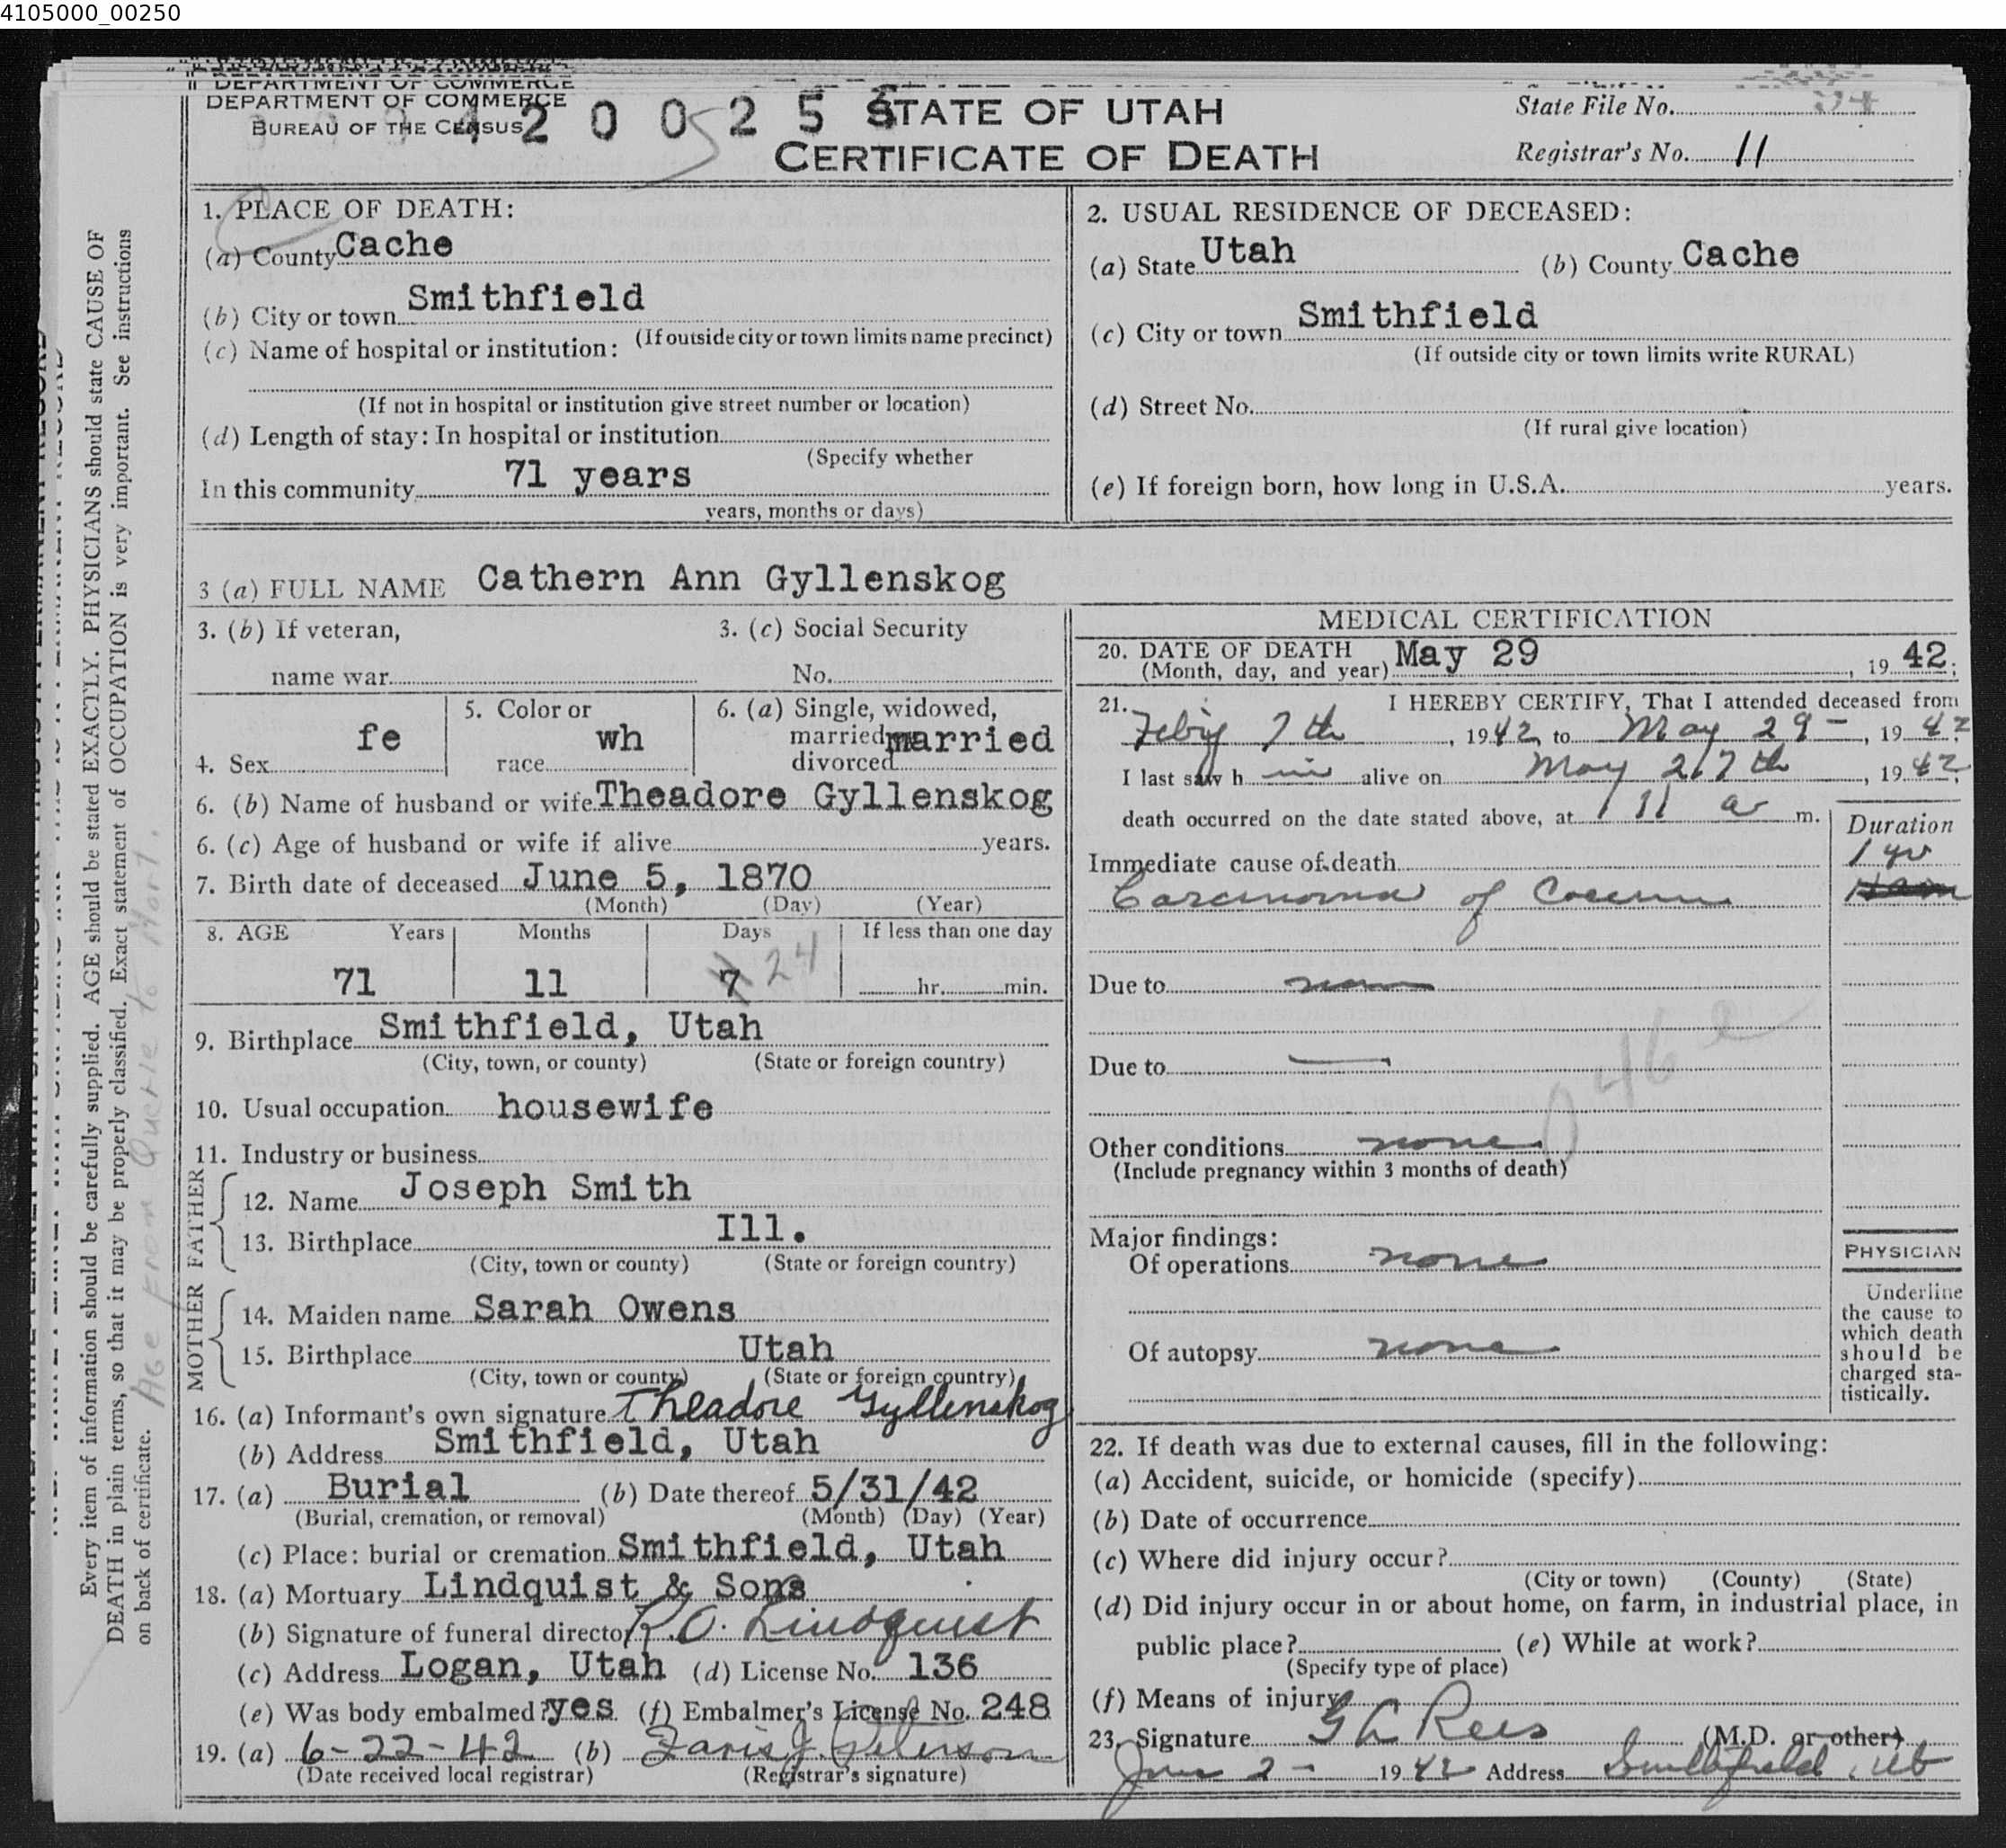 4105000_00250
DEPARTMENT OF COMMERCE
BUREAU OF THE CENSUS
STATE OF UTAH
CERTIFICATE OF DEATH
State File No.
Registrar's No. 11
1. PLACE OF DEATH:
(a) County Cache
(b) City or town Smithfield
(If outside city or town limits name precinct)
(c) Name of hospital or institution:
(If not in hospital or institution give street number or location)
(d) Length of stay: In hospital or institution
(Specify whether
In this community 71 years
years, months or days)
2. USUAL RESIDENCE OF DECEASED:
(a) State Utah (b) County Cache
(c) City or town Smithfield
(If outside city or town limits write RURAL)
(d) Street No.
(If rural give location)
(e) If foreign born, how long in U.S.A. years.
3 (a) FULL NAME Cathern Ann Gyllenskog
3. (b) If veteran,
name war
3. (c) Social Security
No.
4. Sex fe
5. Color or
race wh
6. (a) Single, widowed,
married, married
divorced
6. (b) Name of husband or wife Theadore Gyllenskog
6. (c) Age of husband or wife if alive years.
7. Birth date of deceased June 5, 1870
(Month) (Day) (Year)
8. AGE Years Months Days If less than one day
71 11 7 24 hr. min.
9. Birthplace Smithfield, Utah
(City, town, or county) (State or foreign country)
10. Usual occupation housewife
11. Industry or business
FATHER
12. Name Joseph Smith
13. Birthplace Ill.
(City, town or county) (State or foreign country)
MOTHER
14. Maiden name Sarah Owens
15. Birthplace Utah
(City, town or county) (State or foreign country)
16. (a) Informant's own signature Theadore Gyllenskog
(b) Address Smithfield, Utah
17. (a) Burial (b) Date thereof 5/31/42
(Burial, cremation, or removal) (Month) (Day) (Year)
(c) Place: burial or cremation Smithfield, Utah
18. (a) Mortuary Lindquist & Sons
(b) Signature of funeral director R.O. Lindquist
(c) Address Logan, Utah (d) License No. 136
(e) Was body embalmed? yes (f) Embalmer's License No. 248
19. (a) 6-22-42 (b) J. Peterson
(Date received local registrar) (Registrar's signature)
MEDICAL CERTIFICATION
20. DATE OF DEATH May 29
(Month, day, and year) , 19 42;
21. I HEREBY CERTIFY, That I attended deceased from
7th, 1942, to May 29 -, 19 42
I last saw h alive on May 27th, 19 42,
death occurred on the date stated above, at 11 a m.
Duration
Immediate cause of death 1 yr
Carcinoma of Coecum
Due to
Due to
046
Other conditions none
(Include pregnancy within 3 months of death)
Major findings:
Of operations none
Of autopsy none
PHYSICIAN
Underline
the cause to
which death
should be
charged sta-
tistically.
22. If death was due to external causes, fill in the following:
(a) Accident, suicide, or homicide (specify)
(b) Date of occurrence
(c) Where did injury occur?
(City or town) (County) (State)
(d) Did injury occur in or about home, on farm, in industrial place, in
public place? (e) While at work?
(Specify type of place)
(f) Means of injury
23. Signature G L Rees (M.D. or other)
June 2 - 19 42 Address Smithfield, Ut
Every item of information should be carefully supplied. AGE should be stated EXACTLY. PHYSICIANS should state CAUSE OF
DEATH in plain terms, so that it may be properly classified. Exact statement of OCCUPATION is very important. See instructions
on back of certificate. Age from Querie to Mort.